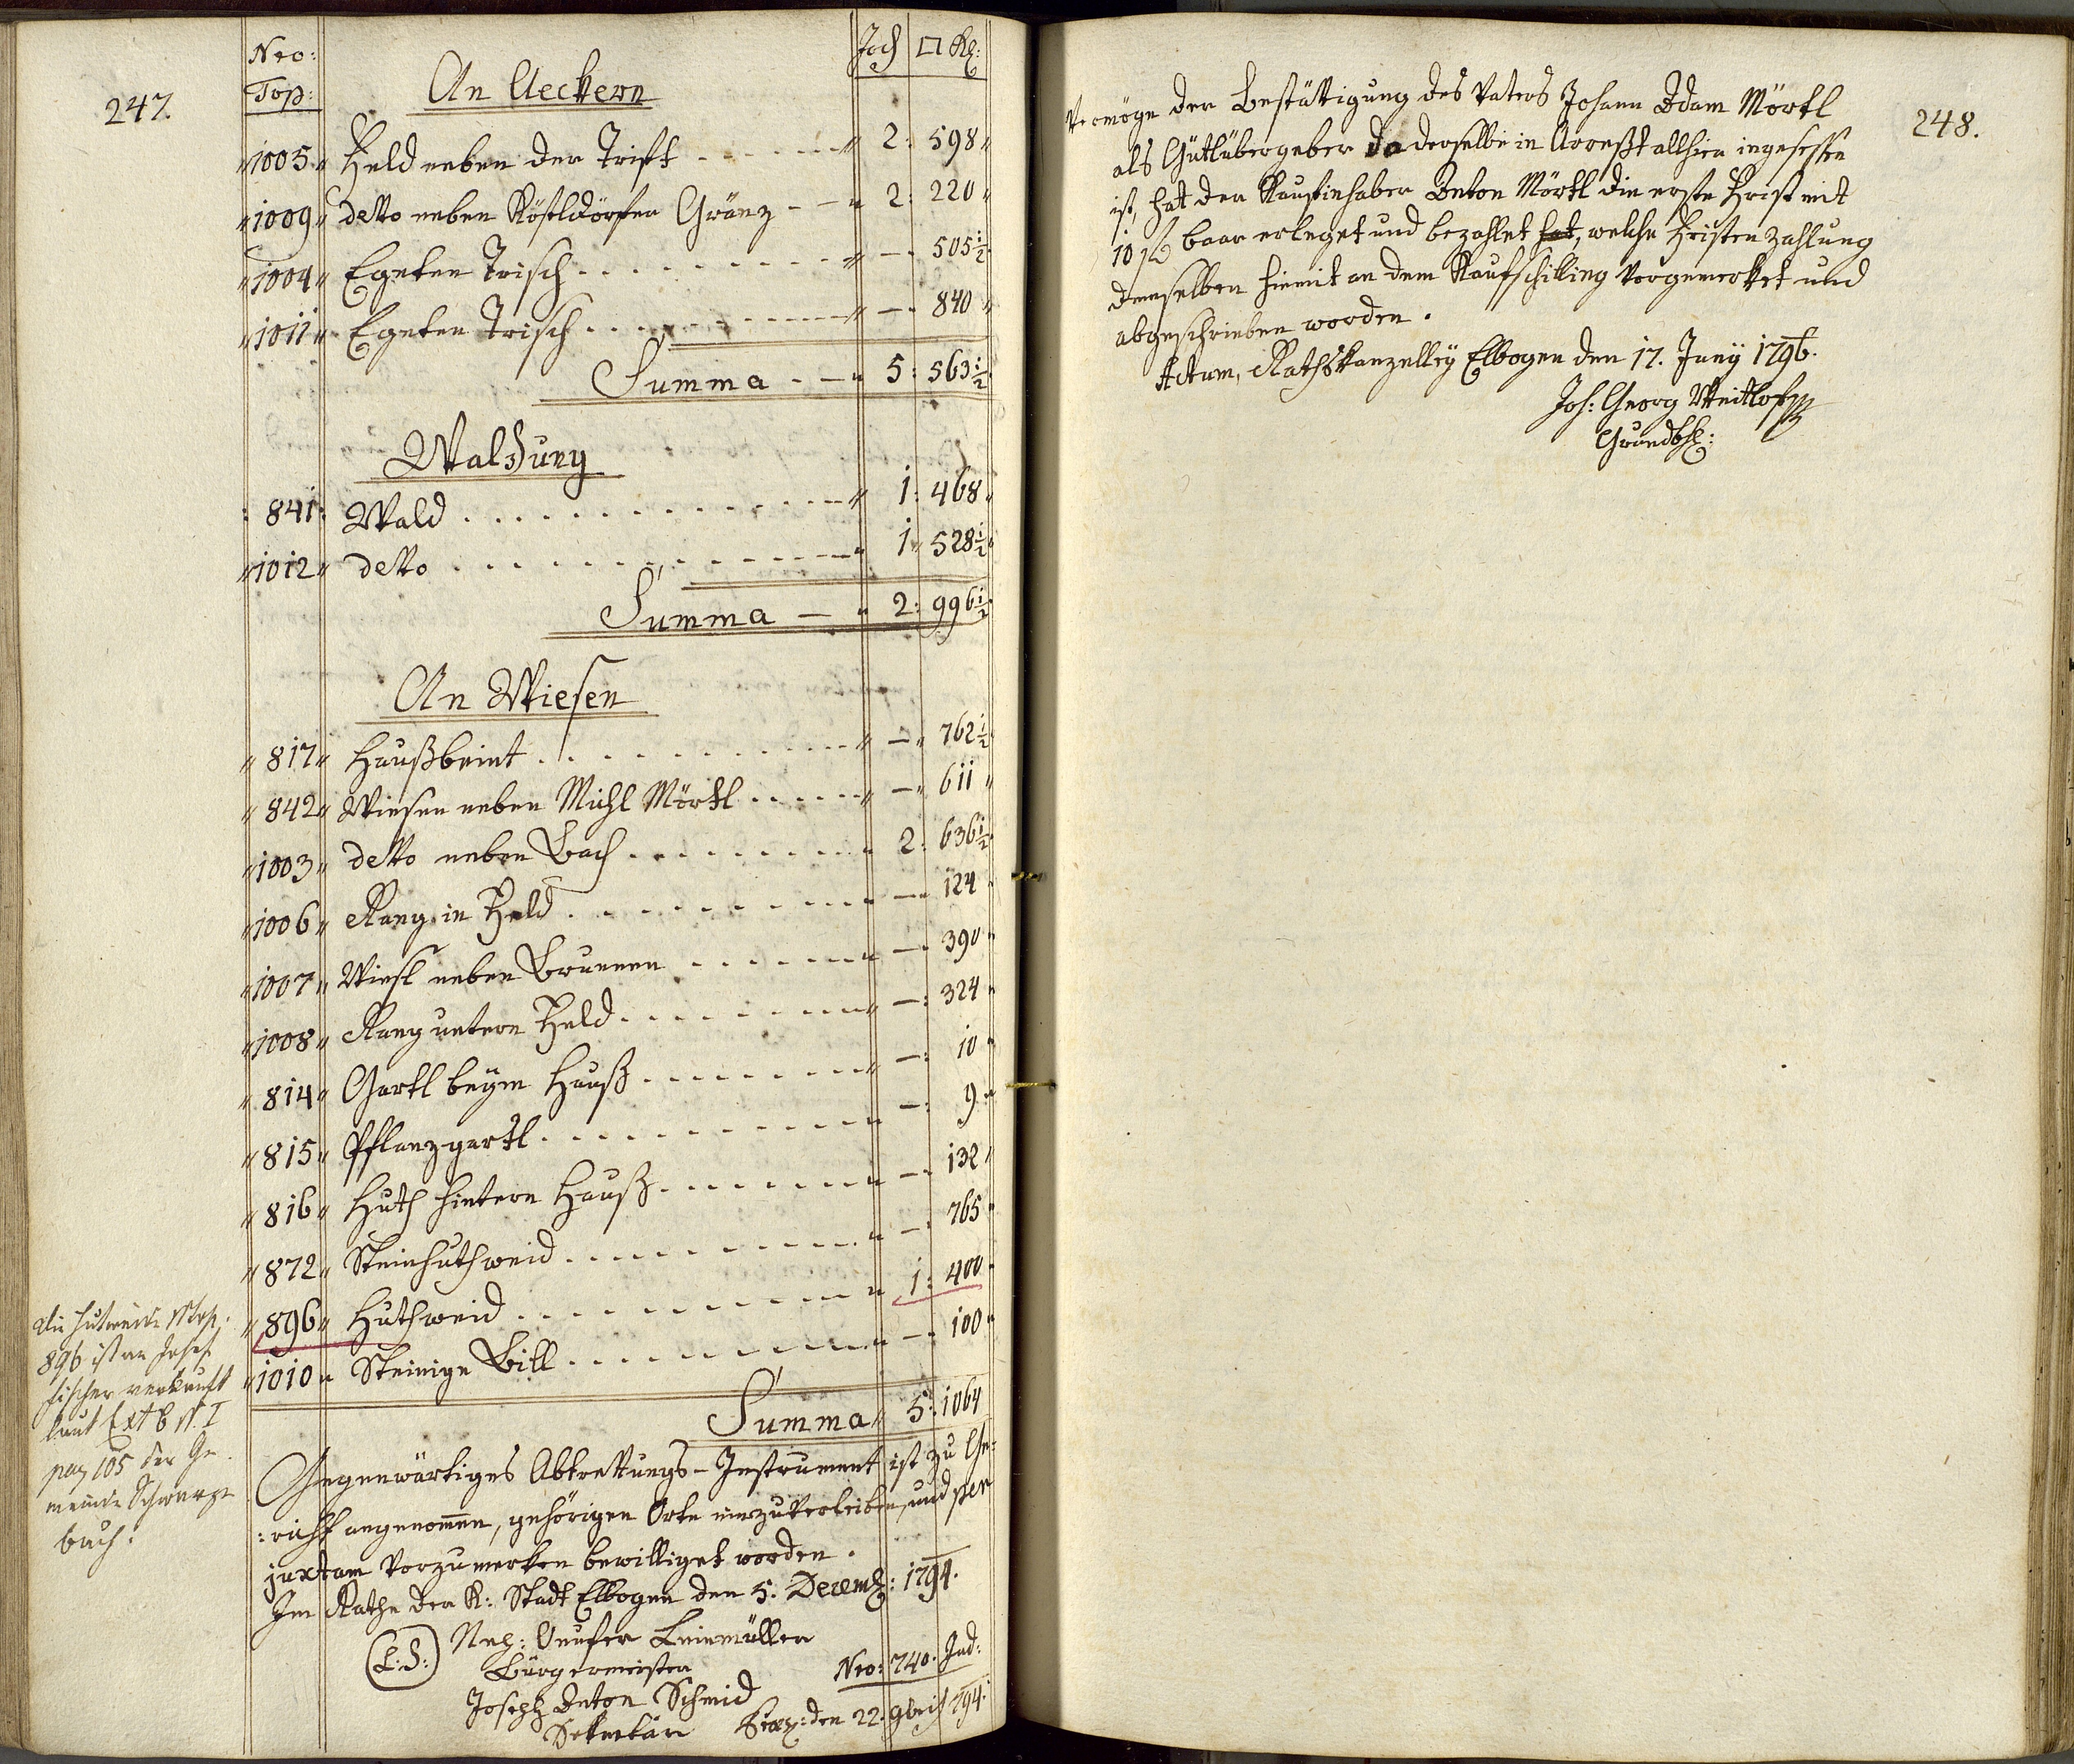 247.
Nro: Top: An Aeckern Joch □ Kl:
1005 Feld neben der Trift 2: 598
1009 detto neben Köstldörfer Gränz 2: 220
1004 Egerten Trisch — 505½
1011 Egerten Trisch — 840
Summa 5: 563½
Waldung
841 Wald 1: 468
1012 detto 1 528½
Summa — 2: 996½
An Wiesen
817 Haußbeint — 762½
842 Wiesen neben Michl Mörtl — 611
1003 detto neben Bach 2: 636½
1006 Rang in Feld — 124
1007 Wiesl neben Brunnen — 390
1008 Rang untern Feld —: 324
814 Gartl beym Hauß —: 10
815 Pflanzgartl —: 9
816 Huth hintern Hauß — 132
872 Steinhuthweid — 765
896 Huthweid 1: 400
1010 Steinige Bill — 100
Summa 5: 1064
Die Hutweide NTop.
896 ist an Josef
Fischer verkauft
laut Extb N. I
pag 105 der Ge-
meinde Schwarzen
bach:
Gegenwärtiges Abtrettungs-Instrument ist zu Ge=
:richt angenomen, gehörigen Orts einzuverleiben, und per
juxtam vorzumerken bewilliget worden.
Im Rathe der K: Stadt Elbogen den 5. Decemb: 1794.
(L:S:) Onufer Leinmüller
Bürgermeister
Nro: 740. Jud:
Joseph Anton Schmid
Sekretär den 22: 9bris 794.
248.
Vermöge der Bestättigung des Vaters Johann Adam Mörtl
als Gütlübergeber da derselbe in Arreßt allhier ingesessen
ist, hat der Kaufinhaber Anton Mörtl die erste Frist mit
10 ß baar erleget und bezahlet hat, welche Fristenzahlung
demselben hiemit an dem Kaufschilling vorgemerket und
abgeschrieben worden.
Actum, Rathskanzelley Elbogen den 17. Juny 1796.
Joh: Georg Weitlof
Grundbh: